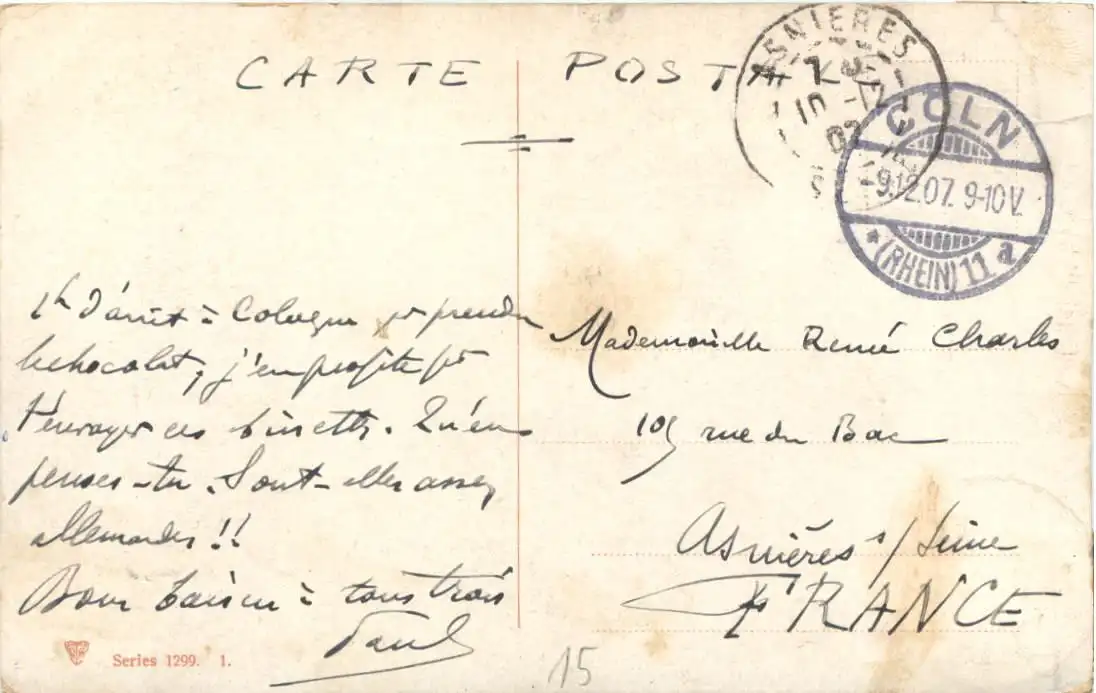 CARTE POSTALE
ASNIERES
10
CÖLN
9.12.07. 9-10V.
* (RHEIN) 11 a
1h d'arrêt à Cologne pr prendre
le chocolat, j'en profite pr
t'envoyer ces binettes. Qu'en
penses-tu. Sont-elles assez
allemandes !!
Bons baisers à tous trois
Paul
Mademoiselle Renée Charles
105 rue du Bac
Asnières s/Seine
FRANCE
Series 1299. 1.
15